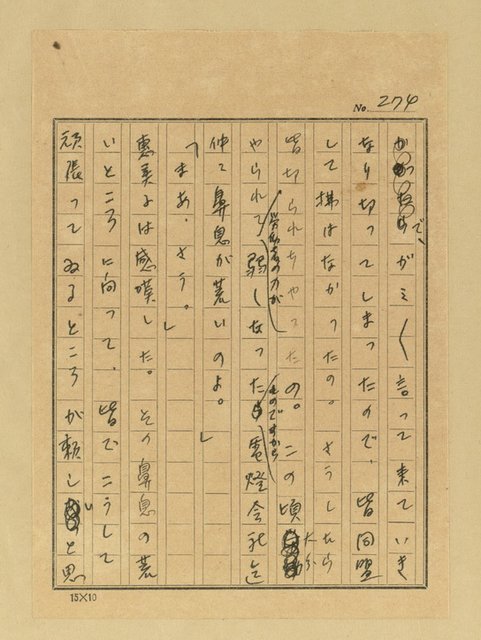 No. 274
で、がみ〱言って来ていき
なり切ってしまったので、皆同盟
して拂はなかったの。さうしたら
皆切られちゃったの。この頃大分
やられて弱しなった
労働者の力が
ものですから
電燈会社迄
仲々鼻息が荒いのよ。」
「まあ、さう。」
恵美子は感嘆した。その鼻息の荒
いところに向って、皆でこうして
頑張ってゐるところが頼しいと思
15×10